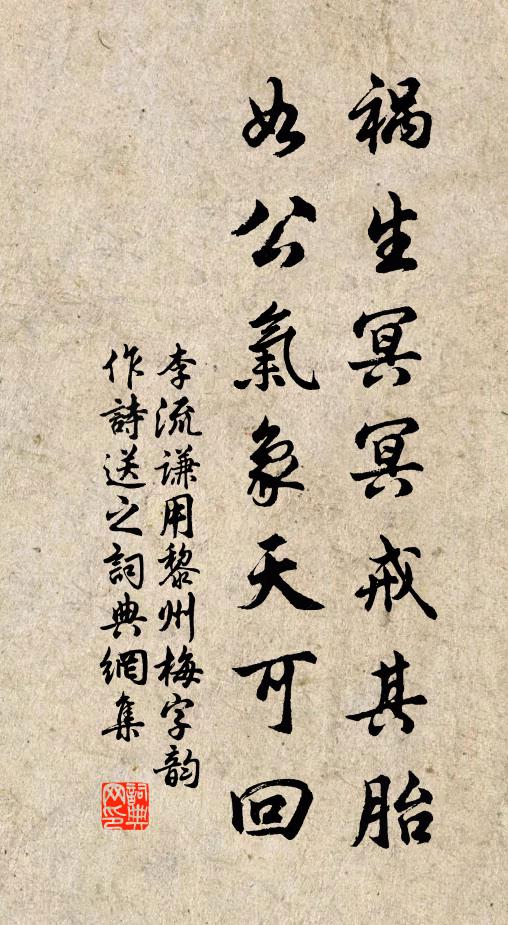 祸生冥冥戒其胎
如公氣象天可回
李流谦用黎州梅字韵
作詩送之詞典網集
詞典网印